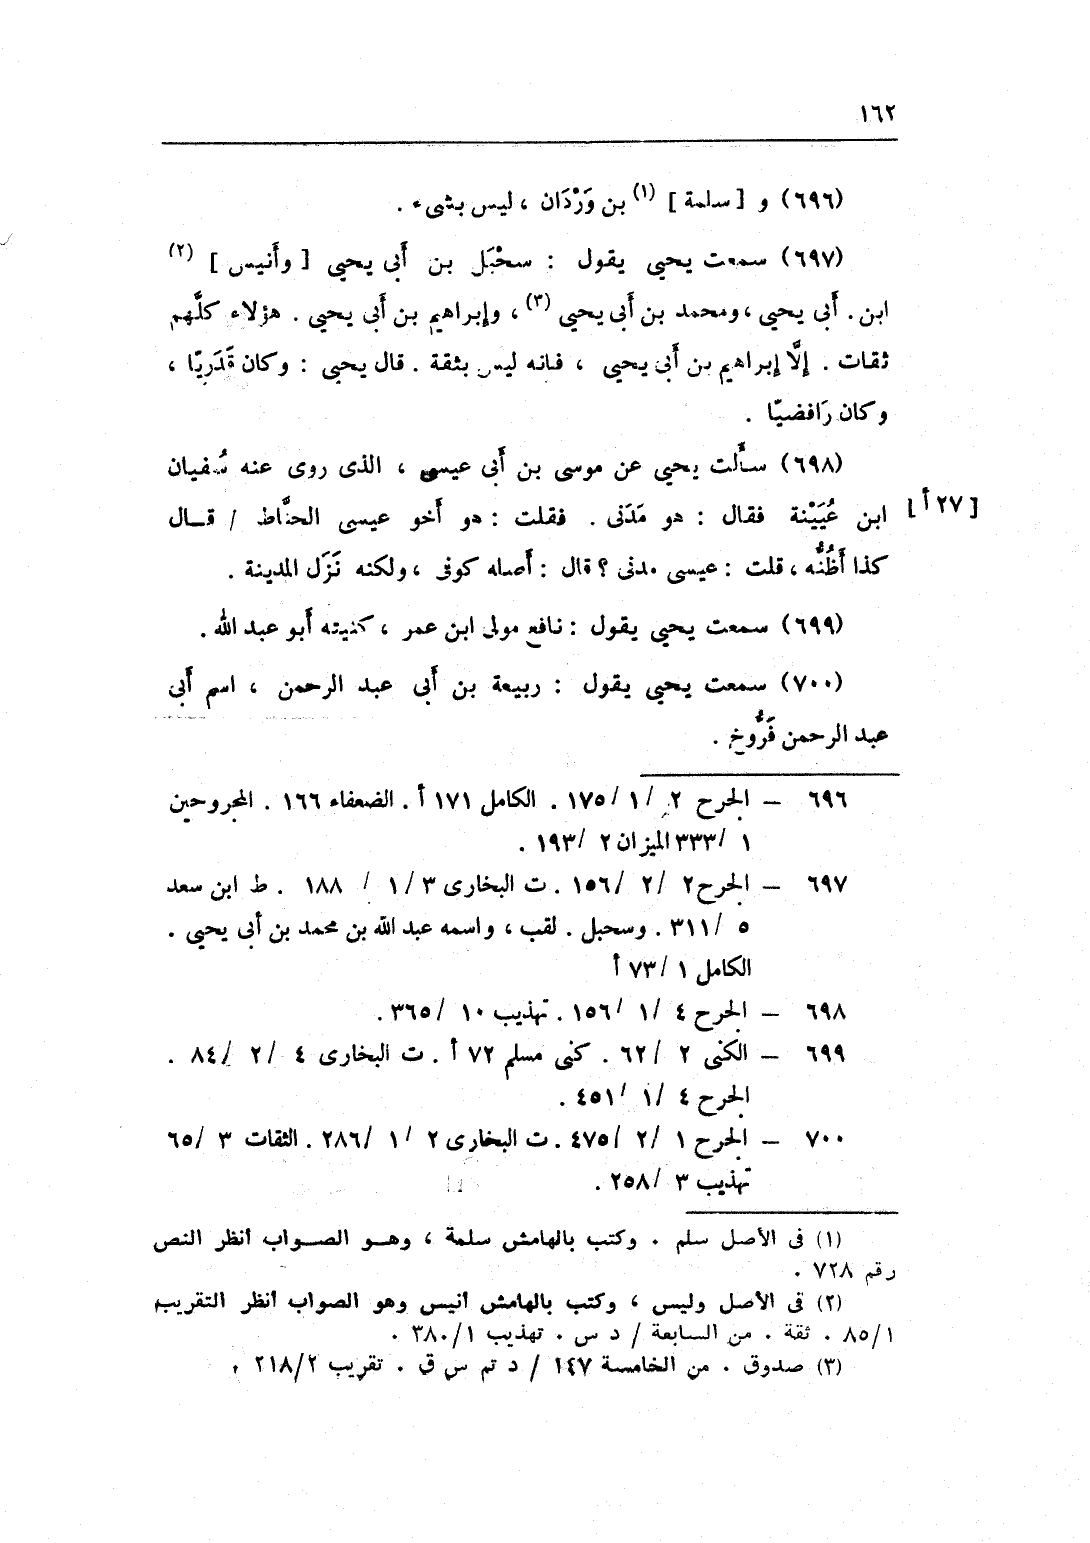 ١٦٢
(٦٩٦) و [ سلمة ] (١) بن وَرْدَان ، ليس بشىء .
(٦٩٧) سمعت يحيى يقول : سحْبَل بن أَبى يحيى [ وأَنيس ] (٢)
ابن . أَبى يحيى ، ومحمد بن أَبى يحيى (٣) ، وإبراهيم بن أَبى يحيى . هؤلاء كلَّهم
ثقات . إلَّا إبراهيم بن أَبى يحيى ، فانه ليس بثقة . قال يحيى : وكان قَدَريًّا ،
وكان رَافضيًّا .
(٦٩٨) سأَلت يحيى عن موسى بن أَبى عيسى ، الذى روى عنه سُفيان
ابن عُيَيْنة فقال : هو مَدَنى . فقلت : هو أَخو عيسى الحنَّاط / قــال
[ ٢٧ أ ]
كذا أَظُنُّه ، قلت : عيسى مدنى ؟ قال : أَصله كوفى ، ولكنه نَزَل المدينة .
(٦٩٩) سمعت يحيى يقول : نافع مولى ابن عمر ، كنيته أَبو عبد الله .
(٧٠٠) سمعت يحيى يقول : ربيعة بن أَبى عبد الرحمن ، اسم أَبى
عبد الرحمن فَرُّوخ .
٦٩٦ – الجرح ٢ / ١ / ١٧٥ . الكامل ١٧١ أ . الضعفاء ١٦٦ . المجروحين
١ / ٣٣٣ الميزان ٢ / ١٩٣ .
٦٩٧ – الجرح ٢ / ٢ / ١٥٦ . ت البخارى ٣ / ١ / ١٨٨ . ط ابن سعد
٥ / ٣١١ . وسحبل . لقب ، واسمه عبد الله بن محمد بن أَبى يحيى .
الكامل ١ / ٧٣ أ
٦٩٨ – الجرح ٤ / ١ / ١٥٦ . تهذيب ١٠ / ٣٦٥ .
٦٩٩ – الكنى ٢ / ٦٢ . كنى مسلم ٧٢ أ . ت البخارى ٤ / ٢ / ٨٤ .
الجرح ٤ / ١ / ٤٥١ .
٧٠٠ – الجرح ١ / ٢ / ٤٧٥ . ت البخارى ٢ / ١ / ٢٨٦ . الثقات ٣ / ٦٥
تهذيب ٣ / ٢٥٨ .
(١) فى الأصل سلم . وكتب بالهامش سلمة ، وهــو الصــواب انظر النص
رقم ٧٢٨ .
(٢) فى الأصل وليس ، وكتب بالهامش أنيس وهو الصواب انظر التقريب
١/ ٨٥ . ثقة . من السابعة / د س . تهذيب ١/ ٣٨٠ .
(٣) صدوق . من الخامسة ١٤٧ / د تم س ق . تقريب ٢/ ٢١٨ .